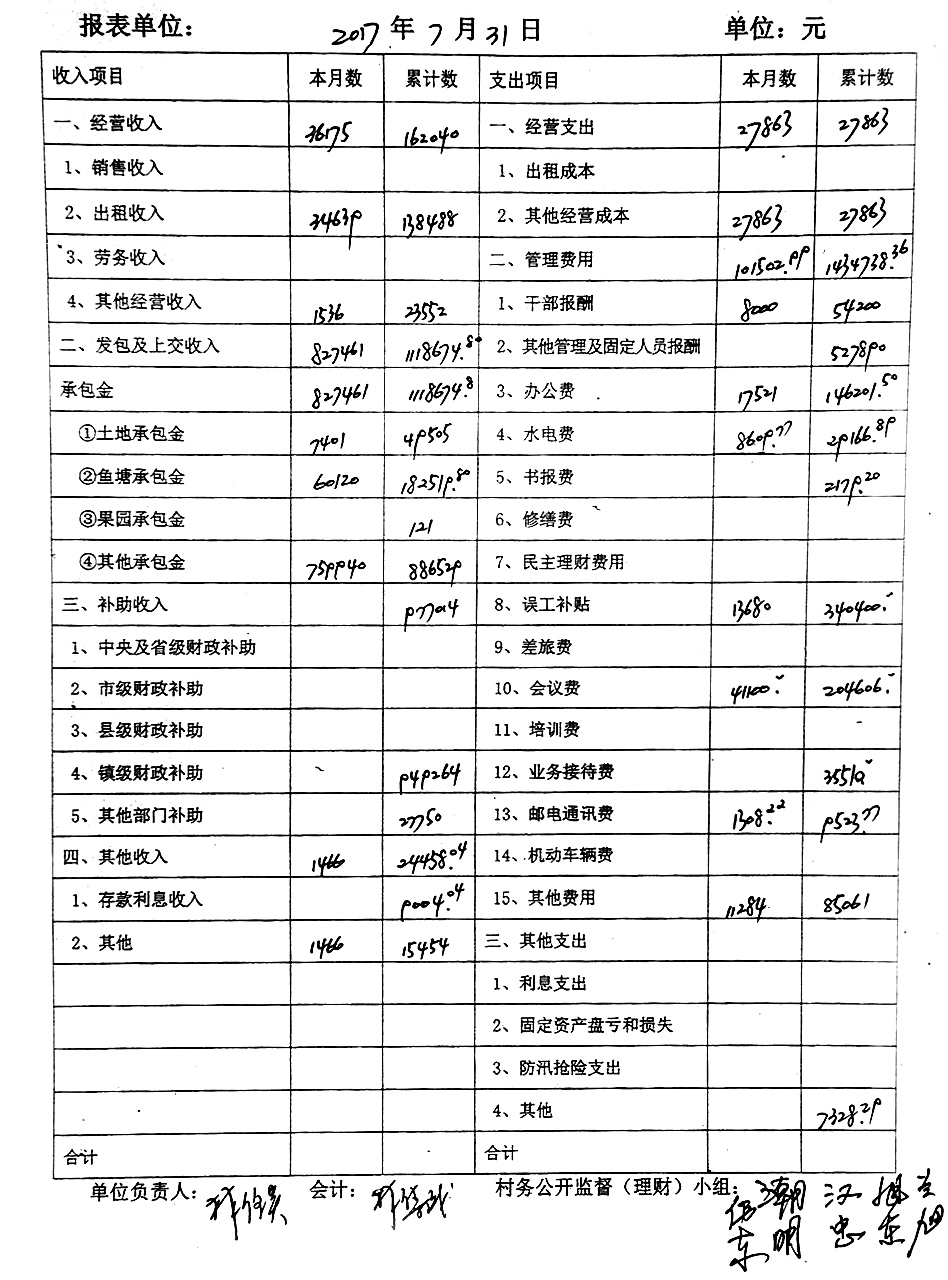 报表单位： 2017 年 7 月 31 日 单位：元
收入项目 本月数 累计数 支出项目 本月数 累计数
一、经营收入 36175 162040 一、经营支出 27863 27863
1、销售收入 1、出租成本
2、出租收入 34639 138488 2、其他经营成本 27863 27863
3、劳务收入 二、管理费用 101502.99 1434738.36
4、其他经营收入 1536 23552 1、干部报酬 8000 54200
二、发包及上交收入 827461 1118674.80 2、其他管理及固定人员报酬 527890
承包金 827461 1118674.8 3、办公费 17521 146201.50
①土地承包金 7401 49505 4、水电费 8609.77 29166.89
②鱼塘承包金 60120 182519.80 5、书报费 2179.20
③果园承包金 121 6、修缮费
④其他承包金 759940 886529 7、民主理财费用
三、补助收入 977014 8、误工补贴 13680 340400.-
1、中央及省级财政补助 9、差旅费
2、市级财政补助 10、会议费 41100.- 204606.-
3、县级财政补助 11、培训费
4、镇级财政补助 949264 12、业务接待费
5、其他部门补助 27750 13、邮电通讯费 1308.22 9523.77
四、其他收入 1466 24458.04 14、机动车辆费
1、存款利息收入 9004.04 15、其他费用 11284 85061
2、其他 1466 15454 三、其他支出
1、利息支出
2、固定资产盘亏和损失
3、防汛抢险支出
4、其他 7328.29
合计 合计
单位负责人： 会计： 村务公开监督（理财）小组：
东 明 忠 东 旭